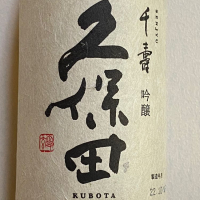 千壽
吟醸
久保田
KUBOTA